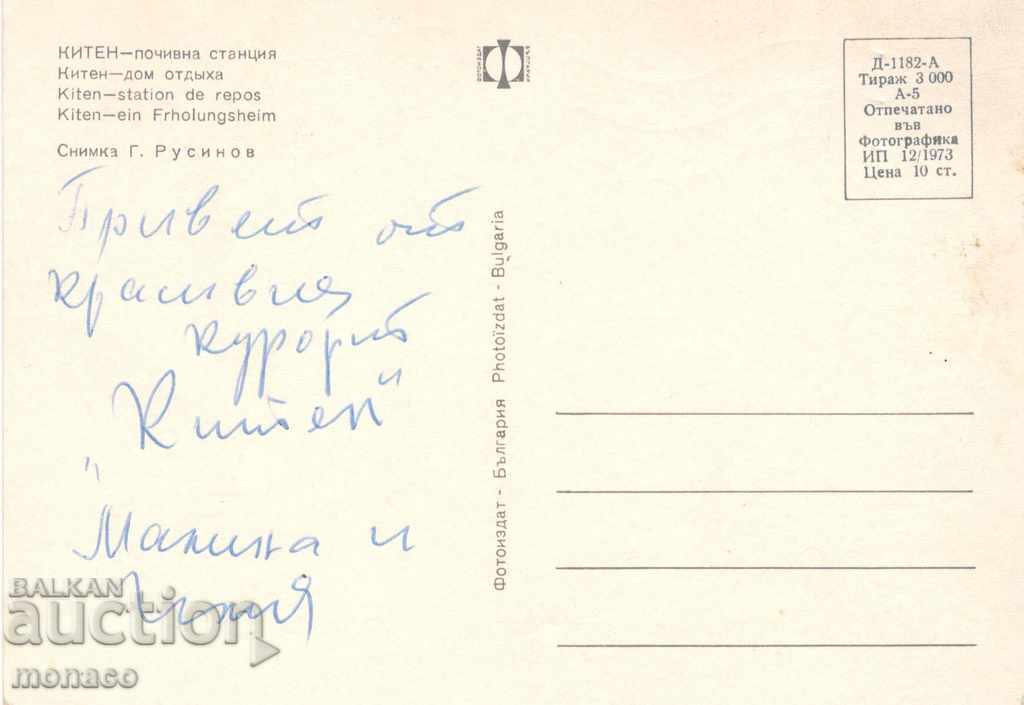 КИТЕН—почивна станция
Китен—дом отдыха
Kiten—station de repos
Kiten—ein Frholungsheim
Снимка Г. Русинов
ФОТОИЗДАТ
Д-1182-А
Тираж 3 000
А-5
Отпечатано
във
Фотографика
ИП 12/1973
Цена 10 ст.
Привет от
красивия
курорт
"Китен"
и
Фотоиздат - България Photoïzdat - Bulgaria
BALKAN
auction
monaco